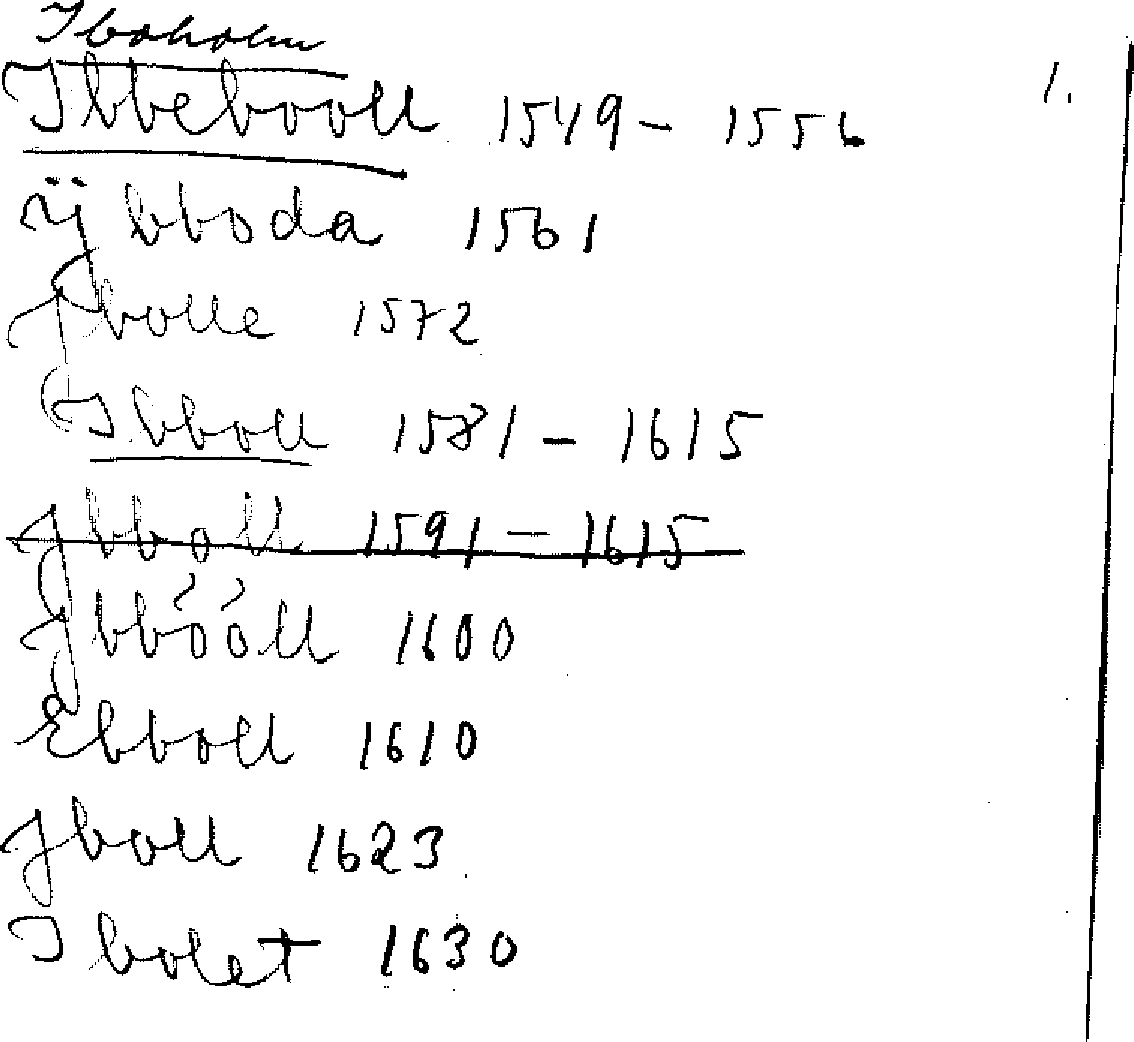 Iboholm
Ibbebooll 1549 – 1556 1.
ÿbboda 1561
Jbolle 1572
Ibboll 1581 – 1615
Jbboll 1591 – 1615
Jbbóóll 1600
Ebboll 1610
Jboll 1623
Ibolet 1630